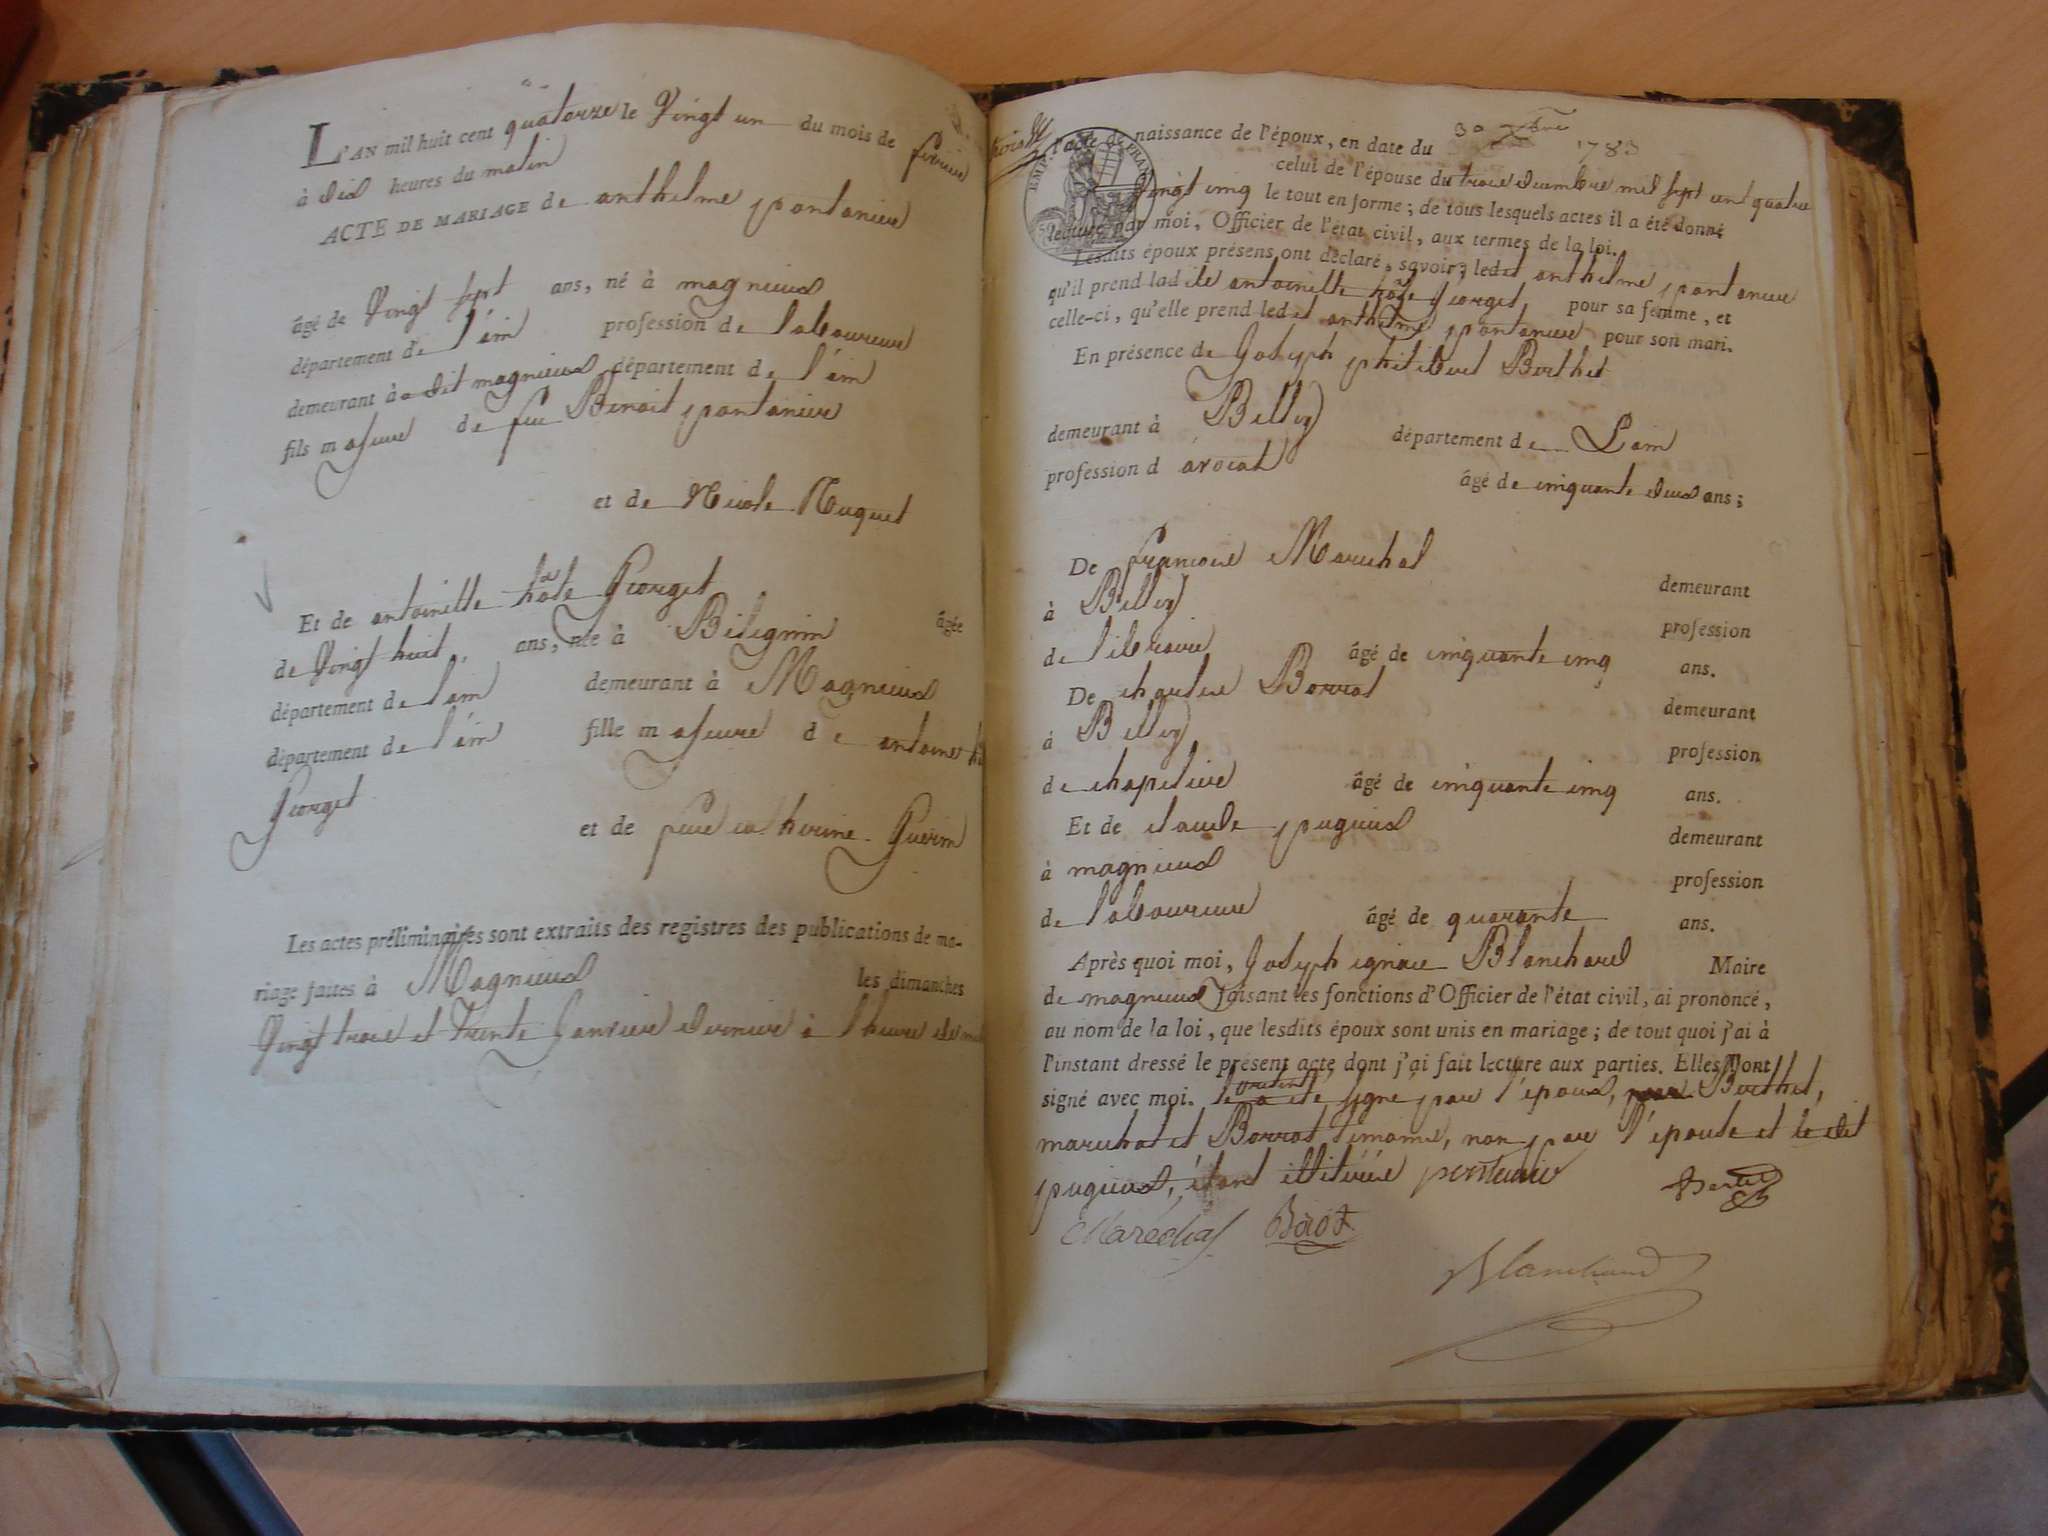 L'AN mil huit cent quatorze le Vingt un du mois de fevrier
à dix heures du matin
ACTE DE MARIAGE de anthelme pontanier
âgé de Vingt sept ans, né à magnieux
département de l'ain profession de laboureur
demeurant à dit magnieux département de l'ain
fils majeur de feu Benoit pontanier
et de Nicole Nuguet
Et de antoinette hôte Georget
âgée
de Vingt huit ans, née à Bélignin
département de l'ain demeurant à Magnieux
département de l'ain fille majeure de antoine
Georget
et de feue catherine Guérin
Les actes préliminaires sont extraits des registres des publications de ma-
riage faites à Magnieux les dimanches
Vingt trois et trente Janvier dernier à l'heure de
l'acte de naissance de l'époux, en date du 30 Xbre 1783
celui de l'épouse du trois decembre mil sept cent quatre
vingt cinq le tout en forme; de tous lesquels actes il a été donné
lecture par moi, Officier de l'état civil, aux termes de la loi.
Lesdits époux présens ont déclaré, savoir; ledit anthelme pontanier
qu'il prend ladite antoinette hôte Georget, pour sa femme, et
celle-ci, qu'elle prend ledit anthelme pontanier pour son mari.
En présence de Joseph philibert Berthet
demeurant à Belley département de Lain
profession d avocat âgé de cinquante deux ans;
De françois Marechal demeurant
à Belley profession
de libraire âgé de cinquante cinq ans.
De charles Borrat demeurant
à Belley profession
de chapelier âgé de cinquante cinq ans.
Et de claude pugieux demeurant
à magnieux profession
de laboureur âgé de quarante ans.
Après quoi moi, Joseph ignace Blanchard Maire
de magnieux faisant les fonctions d'Officier de l'état civil, ai prononcé,
au nom de la loi, que lesdits époux sont unis en mariage; de tout quoi j'ai à
l'instant dressé le présent acte dont j'ai fait lecture aux parties. Elles l'ont
signé avec moi. le présent a été signé par l'époux, Berthet,
marechal et Borrat témoins, non par l'épouse et le dit
pugieux, étant illitérés pontanier
Maréchal
Blanchard